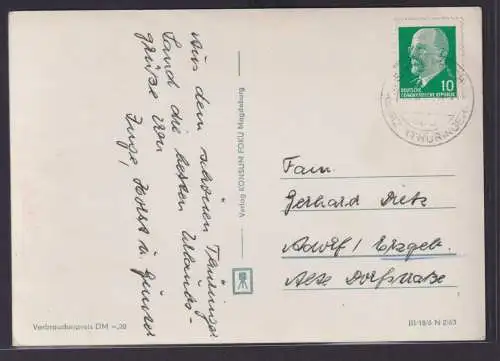 Aus dem schönen Thüringer
Land die besten Urlaubs-
grüße von
Inge, Horst u. Günter
Verlag KONSUM IN FOKU Magdeburg
DEUTSCHE
DEMOKRATISCHE REPUBLIK
10
(THÜRINGEN)
Fam.
Gerhard Dietz
Adorf/Erzgeb.
Alte Dorfstraße
Verbraucherpreis DM –,20
III/18/6 N 2/63